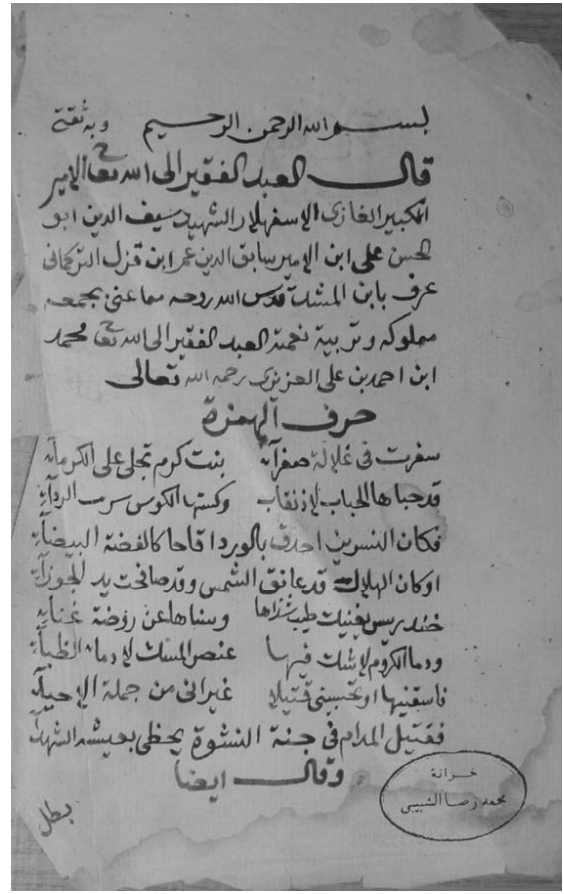 بسم الله الرحمن الرحيم وبه ثقتي
قال العبد الفقير الى الله تعا الامير
الكبير الغازى الاسفهلار الشهيد سيف الدين ابو
الحسن على ابن الامير سابق الدين عمر ابن قزل التركمانى
عرف بابن المشد قدس الله روحه مما عنى بجمعه
مملوكه وتربية نعمته العبد الفقير الى الله تعا محمد
ابن احمد بن على العزيزى رحمه الله تعالى
حرف الهمزة
سفرت فى غلالة صفرآء بنت كرم تجلى على الكرمآء
قد حباها الحباب لاذنقاب وكستها الكوس الردآء
فكان النسرين احدق بالورد اقاحا كالفضة البيضآء
اوكان الهلال قد عانق الشمس وقد صافحت يد الجوزآء
خندريس يغنيك طيب شذاها وسناها عن روضة غناء
ودما الكروم لا شك فيها عنصر المسك لا دمآء الظبآء
فاسقنيها او تحسبنى قتيلا غير انى من جملة الاحيآء
فقتيل المدام فى جنة النشوة يحظى بعيشه الشهدآء
وقال ايضا
خزانة
محمد رضا الشبيبي